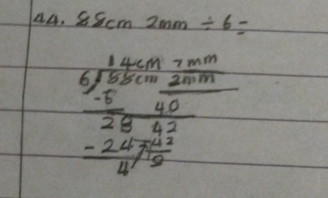 44. 88cm 2mm ÷ 6 =
14cm 7mm
6 88cm 2mm
-6 40
28 42
- 24 - 42
4